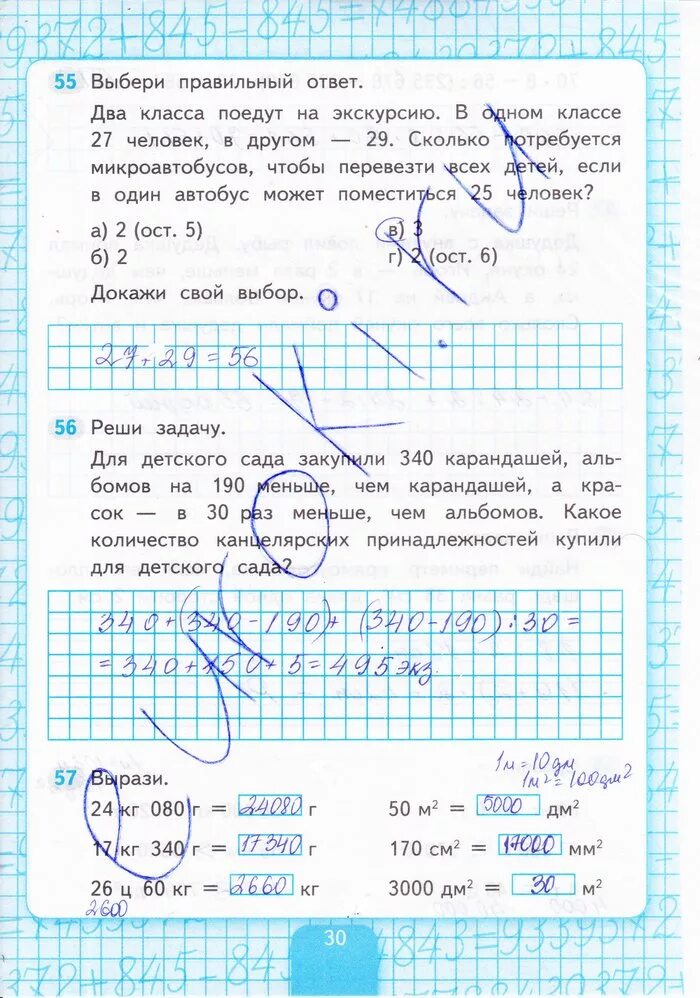 55 Выбери правильный ответ.
Два класса поедут на экскурсию. В одном классе
27 человек, в другом — 29. Сколько потребуется
микроавтобусов, чтобы перевезти всех детей, если
в один автобус может поместиться 25 человек?
а) 2 (ост. 5) в) 3
б) 2 г) 2 (ост. 6)
Докажи свой выбор.
27+29=56
56 Реши задачу.
Для детского сада закупили 340 карандашей, аль-
бомов на 190 меньше, чем карандашей, а кра-
сок — в 30 раз меньше, чем альбомов. Какое
количество канцелярских принадлежностей купили
для детского сада?
340+(340-190)+(340-190):30=
=340+150+5=495 экз.
57 Вырази.
1м=10дм
1м²=100дм²
24 кг 080 г = 24080 г 50 м² = 5000 дм²
17 кг 340 г = 17340 г 170 см² = 17000 мм²
26 ц 60 кг = 2660 кг 3000 дм² = 30 м²
2600
30